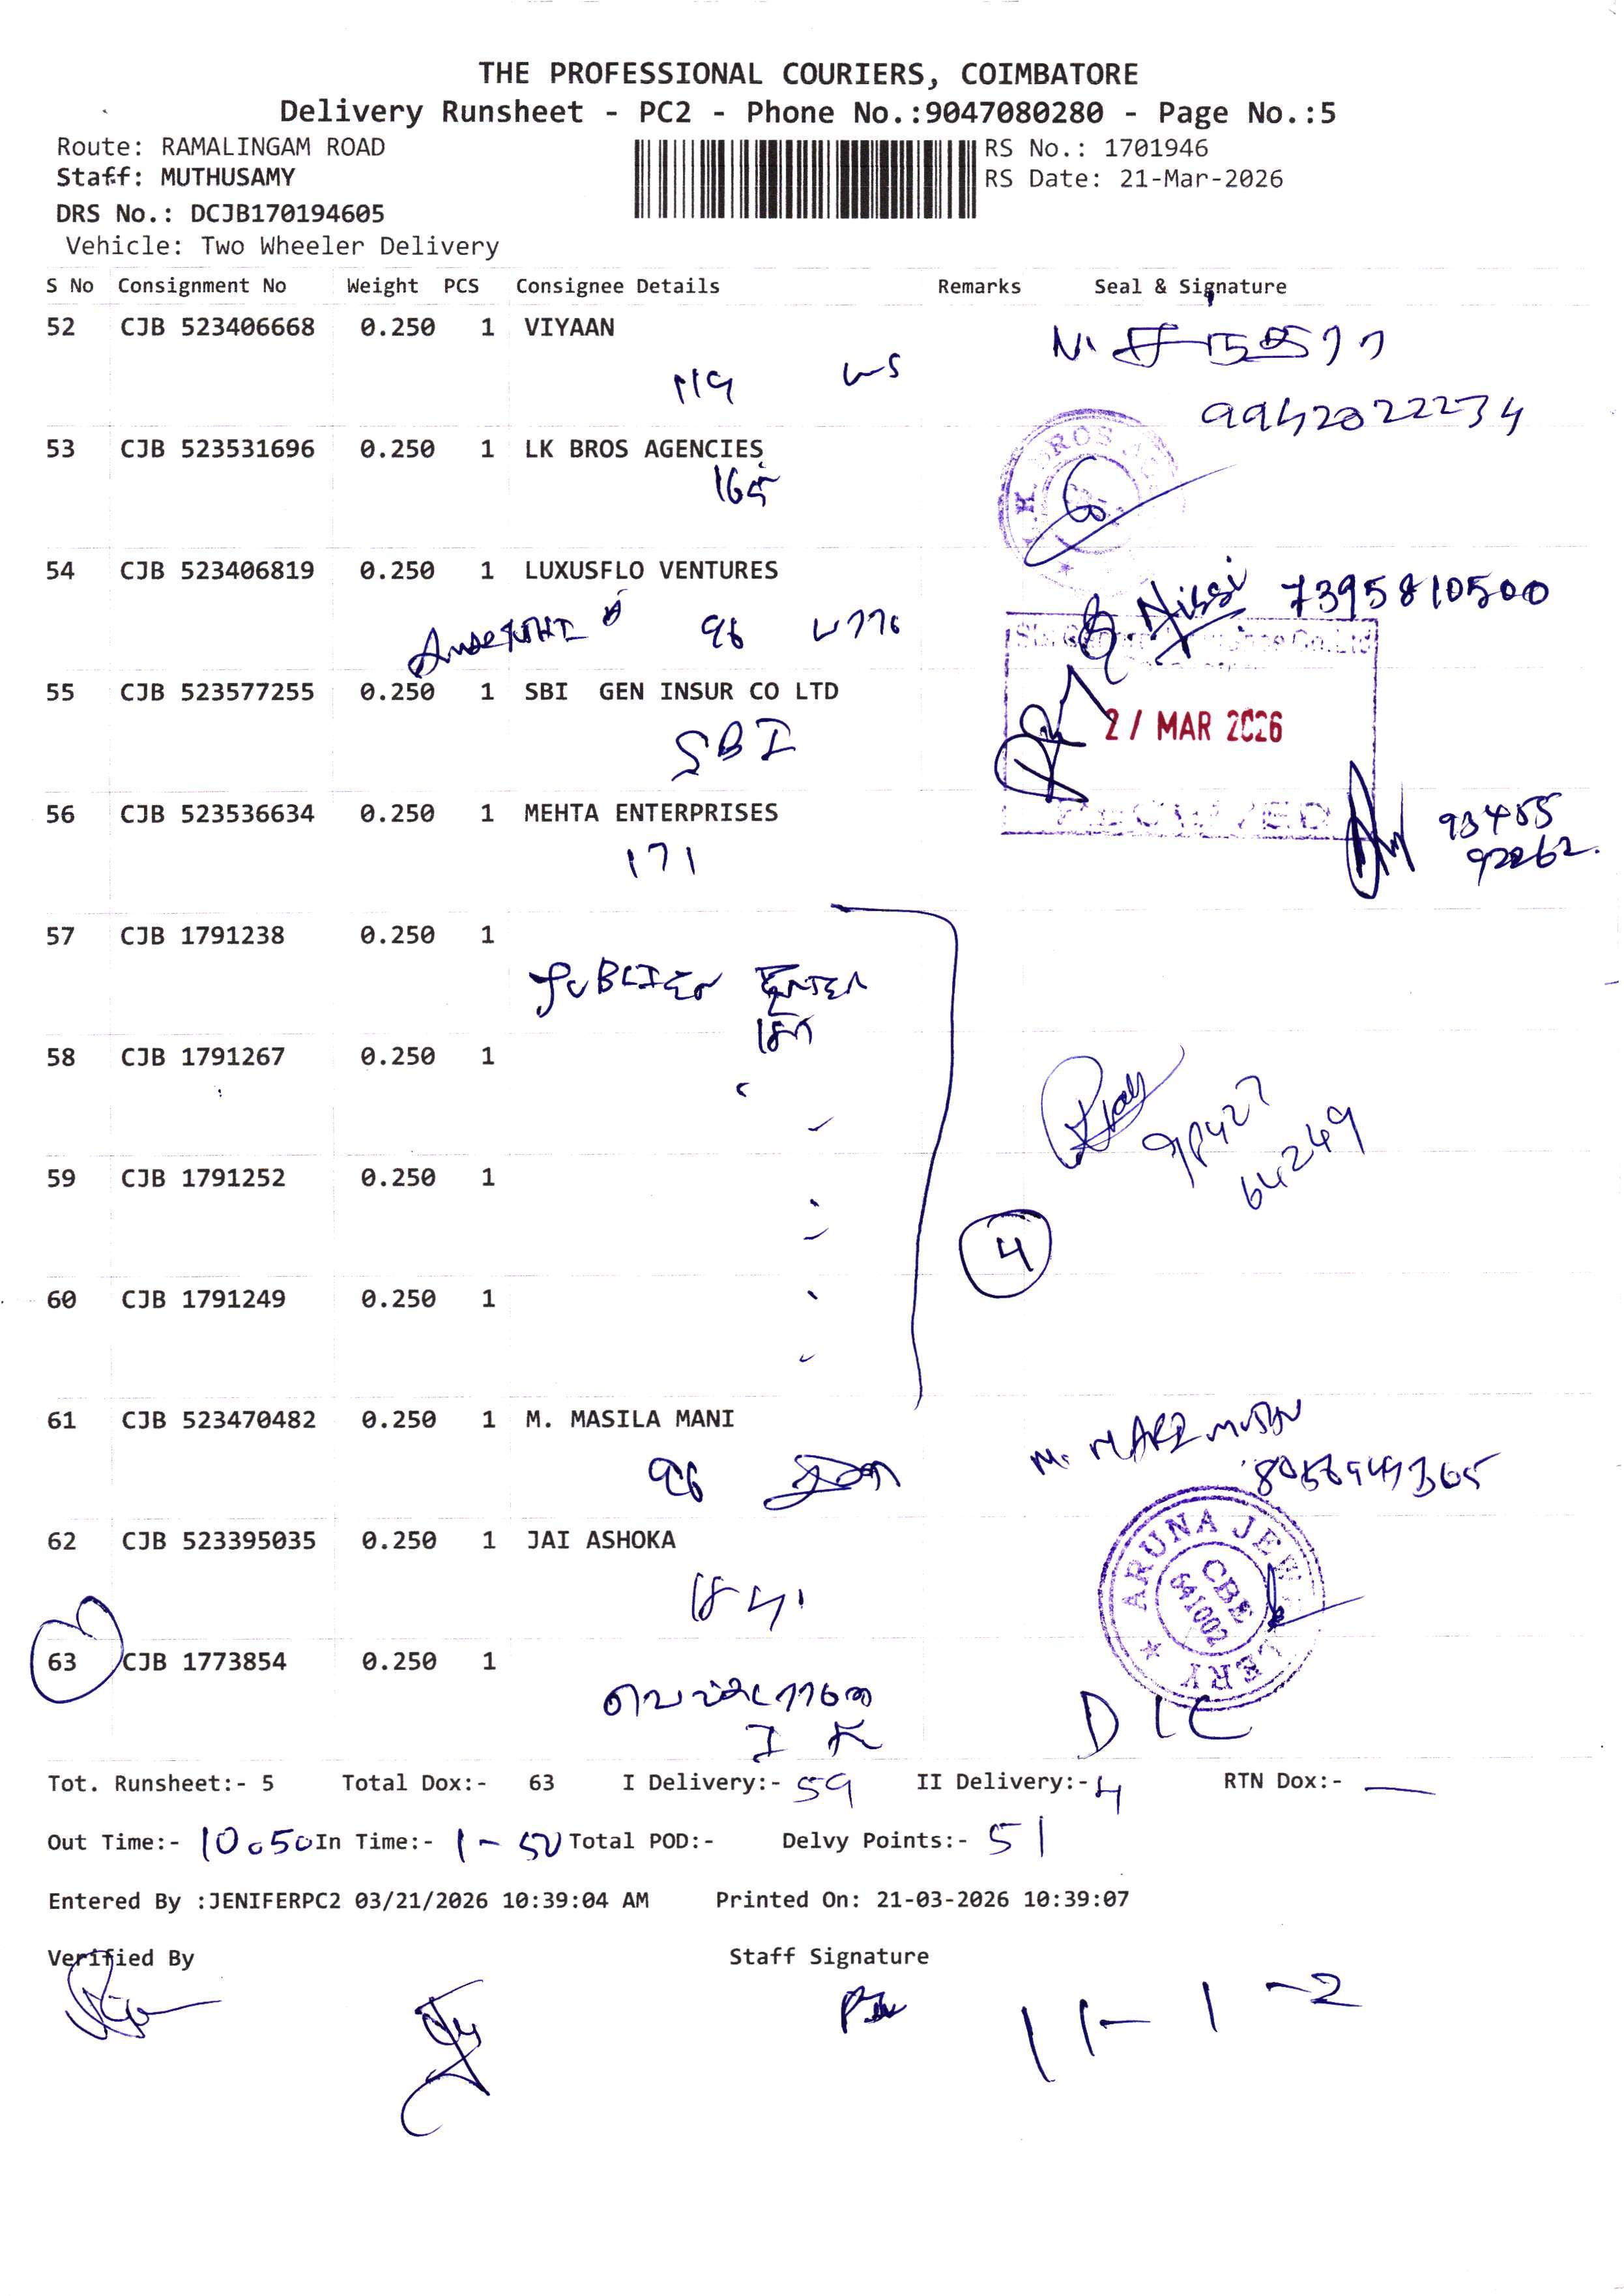 THE PROFESSIONAL COURIERS, COIMBATORE
Delivery Runsheet - PC2 - Phone No.:9047080280 - Page No.:5
Route: RAMALINGAM ROAD
RS No.: 1701946
Staff: MUTHUSAMY
RS Date: 21-Mar-2026
DRS No.: DCJB170194605
Vehicle: Two Wheeler Delivery
S No Consignment No Weight PCS Consignee Details Remarks Seal & Signature
52 CJB 523406668 0.250 1 VIYAAN
119
9942022234
53 CJB 523531696 0.250 1 LK BROS AGENCIES
165
54 CJB 523406819 0.250 1 LUXUSFLO VENTURES
Nissi 7395810500
96
55 CJB 523577255 0.250 1 SBI GEN INSUR CO LTD
SBI
MAR 2026
56 CJB 523536634 0.250 1 MEHTA ENTERPRISES
171
57 CJB 1791238 0.250 1
58 CJB 1791267 0.250 1
59 CJB 1791252 0.250 1
64249
4
60 CJB 1791249 0.250 1
61 CJB 523470482 0.250 1 M. MASILA MANI
96
62 CJB 523395035 0.250 1 JAI ASHOKA
ARUNA JEWELLERY
CBE
641002
63 CJB 1773854 0.250 1
DLC
Tot. Runsheet:- 5 Total Dox:- 63 I Delivery:- 59 II Delivery:- 4 RTN Dox:- —
Out Time:- 10.50 In Time:- 1-50 Total POD:- Delvy Points:- 51
Entered By :JENIFERPC2 03/21/2026 10:39:04 AM Printed On: 21-03-2026 10:39:07
Verified By Staff Signature
11-1-2